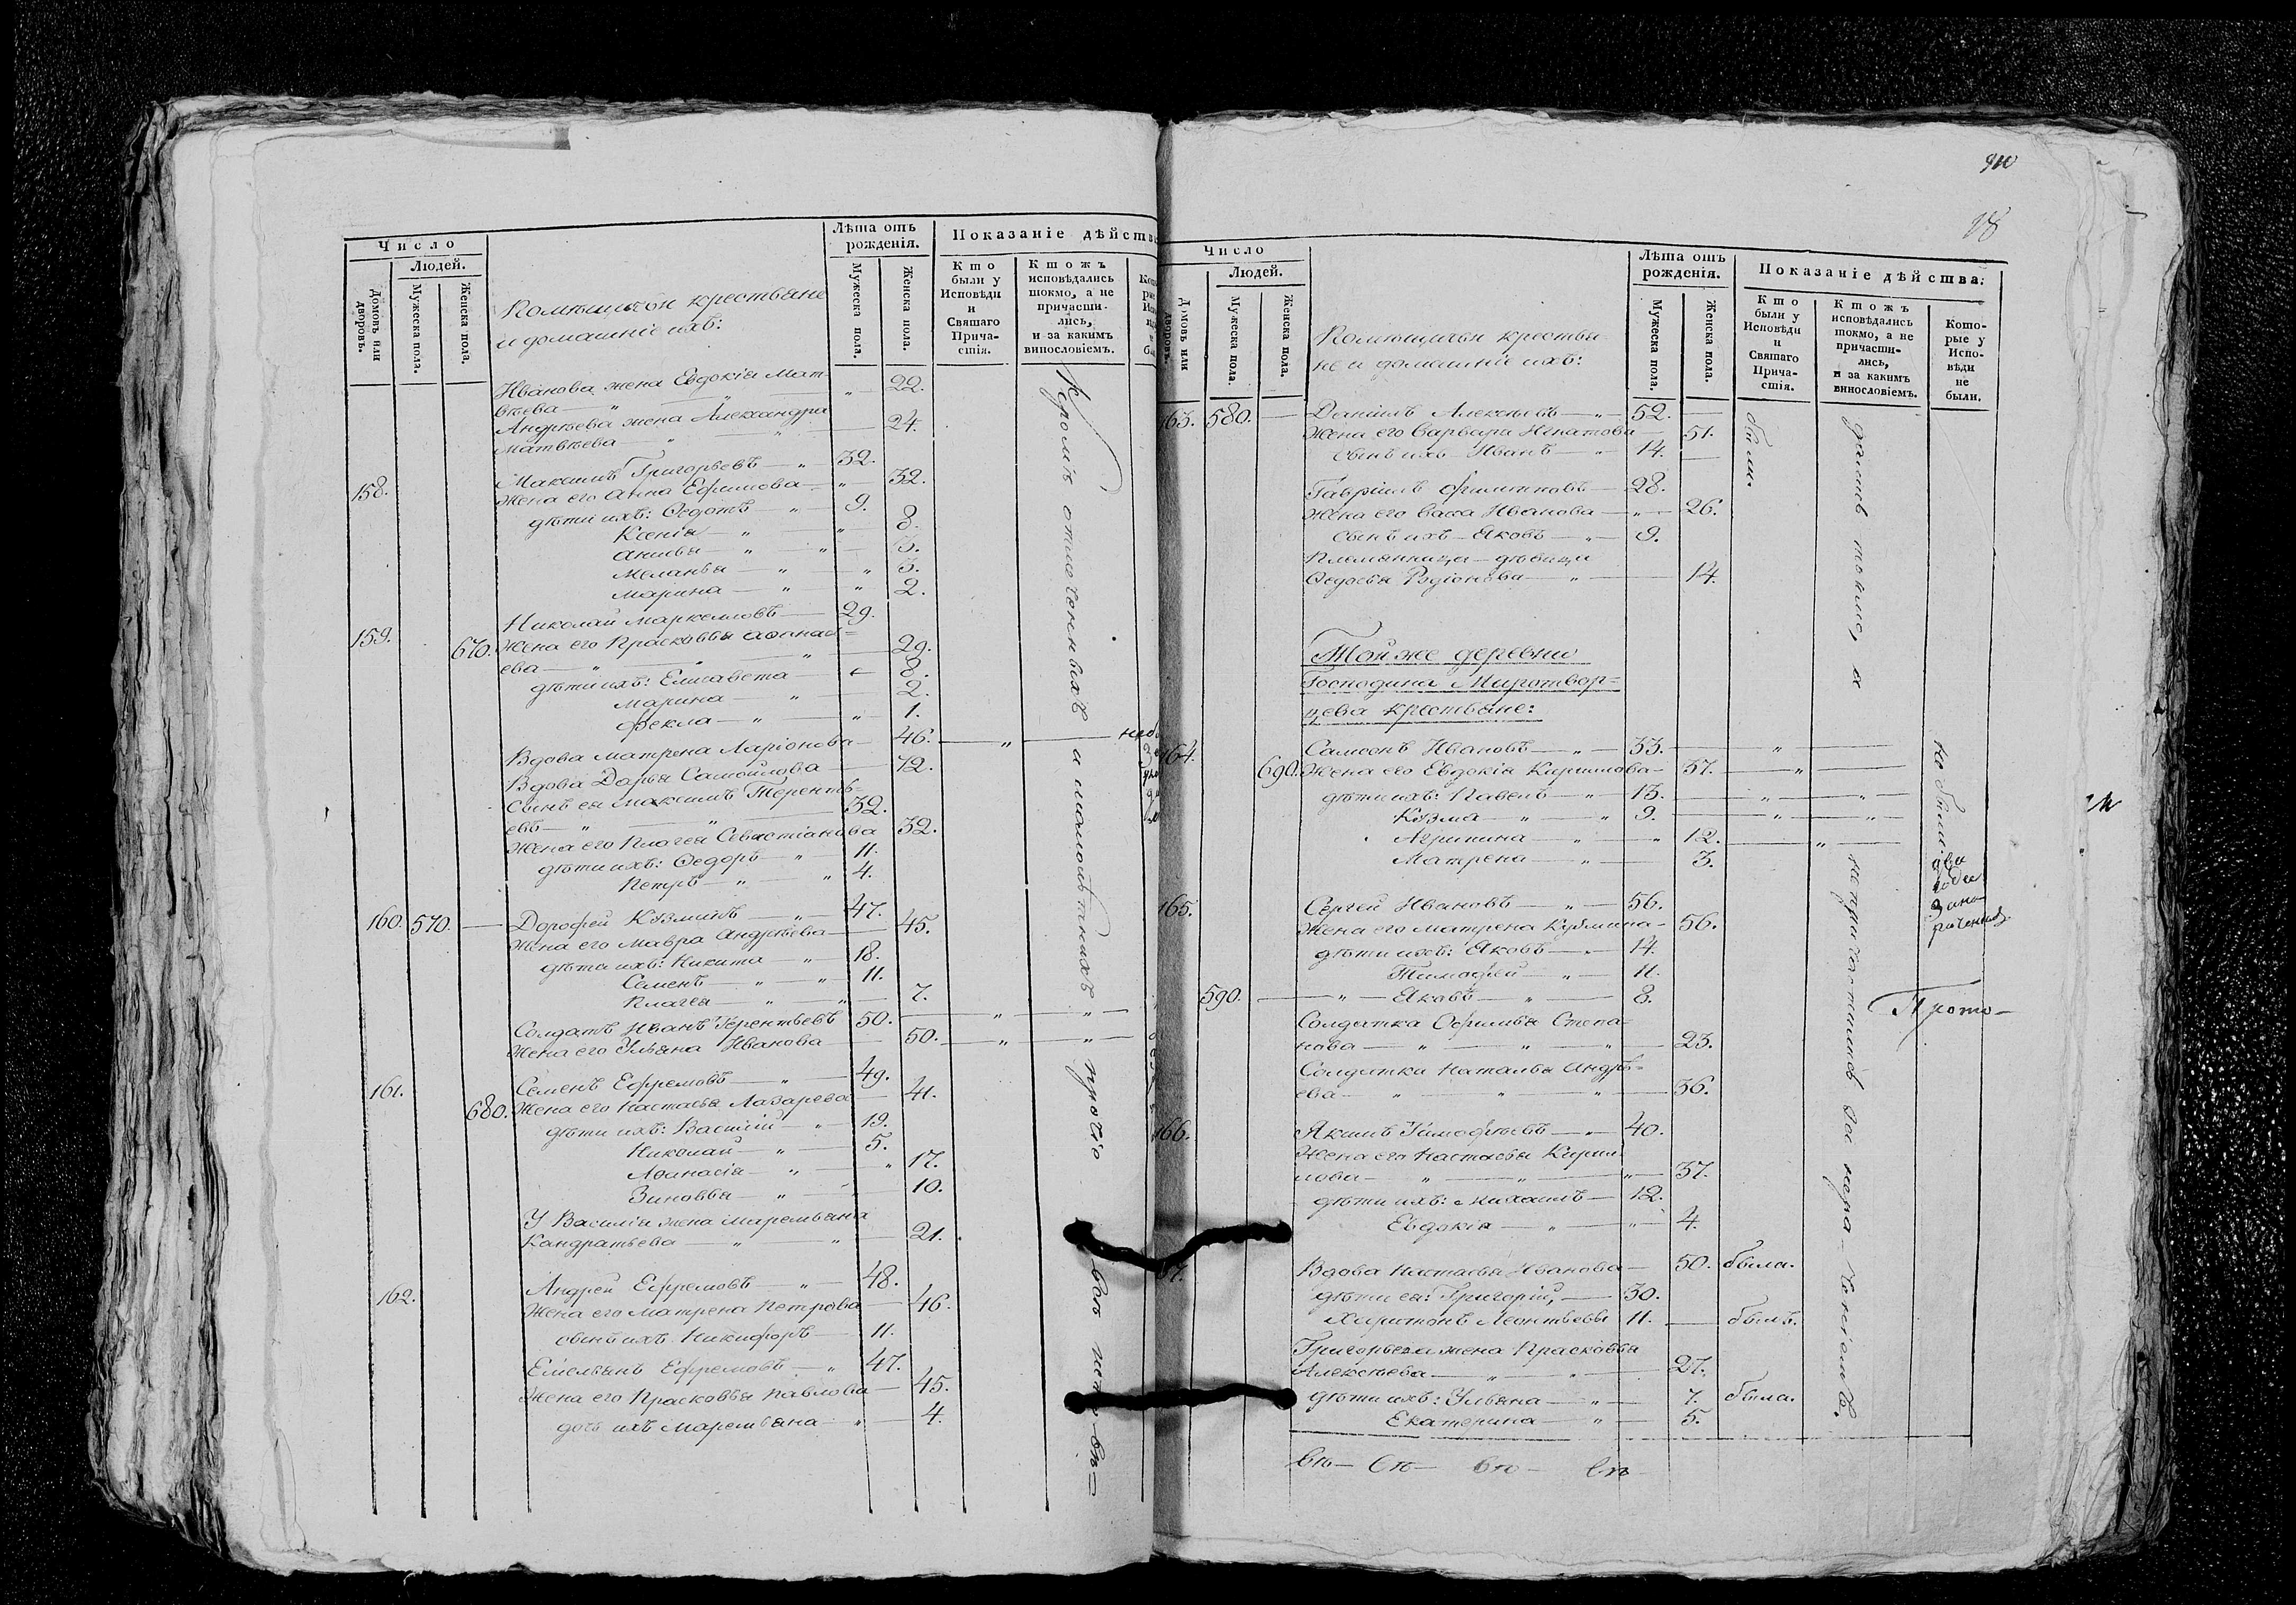 Число
Людей.
Домовъ или дворовъ.
Мужеска пола.
Женска пола.
Помѣщичьи крестьяне
и домашніе ихъ:
Лѣта отъ рожденія.
Мужеска пола.
Женска пола.
Показаніе дѣйств
Кто были у Исповѣди и Святаго Причастія.
Ктожъ исповѣдались токмо, а не причастились, и за какимъ винословіемъ.
Иванова жена Евдокія Мат-
вѣева — „ — „ — 22.
Андрѣева жена Александра
Матвѣева — „ — 24.
158. Максимъ Григорьевъ — „ — 32.
Жена его Анна Ефимова — „ — 32.
дѣти ихъ: Ѳедотъ — „ — 9.
Ксенія — „ — „ 8.
Анисья — „ — „ — 5.
Меланья — „ — „ 3.
Марина — „ — „ 2.
159. Николай Маркелловъ — 29.
670. Жена его Прасковья Аѳанась=
ева — „ — „ — 29.
дѣти ихъ: Елисавета — 8.
Марина — „ — 2.
Ѳекла — „ — „ 1.
Вдова Матрена Ларіонова — 46. — „ —
Вдова Дарья Самойлова — 72.
Сынъ ея Максимъ Терентьь=
евъ — „ — „ — 32.
Жена его Пелагея Севастіанова 32.
дѣти ихъ: Ѳедоръ — „ 11.
Петръ — „ — „ 4.
160. 570. — Дорофей Кузминъ — „ — 47.
Жена его Мавра Андрѣева — 45.
дѣти ихъ: Никита — „ — 18.
Семенъ — „ — „ 11.
Пелагея — „ — „ — 7.
Солдатъ Иванъ Терентьевъ 50. — „ — „ —
Жена его Ульяна Иванова — 50. — „ — „ —
161. Семенъ Ефремовъ — „ — 49.
680. Жена его Настасья Лазарева — 41.
дѣти ихъ: Василій — „ — 19.
Николай — „ — 5.
Аѳанасія — „ — „ 17.
Зиновья — „ — 10.
У Василія жена Маремьяна
Кандратьева — „ — „ — 21.
162. Андрей Ефремовъ — „ — 48.
Жена его Матрена Петрова — 46.
сынъ ихъ Никифоръ — 11.
Емельянъ Ефремовъ — „ 47.
Жена его Прасковья Павлова — 45.
дочь ихъ Маремьяна — „ — 4.
Кромѣ отмеченныхъ а малолѣтнихъ прочіе всѣ
910
Число
Людей.
Домовъ или дворовъ.
Мужеска пола.
Женска пола.
Помѣщичьи крестья
не и домашніе ихъ:
Лѣта отъ рожденія.
Мужеска пола.
Женска пола.
Показаніе дѣйства:
Кто были у Исповѣди и Святаго Причастія.
Ктожъ исповѣдались токмо, а не причастились, и за какимъ винословіемъ.
Которые у Исповѣди не были.
163. 580. — Даніилъ Алексѣевъ — „ — 52. —
Жена его Варвара Игнатова — 51.
сынъ ихъ Иванъ — „ — 14. —
Гавріилъ Филипповъ — 28.
Жена его Васса Иванова — „ — 26.
сынъ ихъ — Яковъ — „ — 9.
Племянница — дѣвица
Ѳедосья Родіонова — „ — 14.
были.
Той же деревни
Господина Миротвор=
цева крестьяне:
164. Самсонъ Ивановъ — „ — 33. — „ —
690. Жена его Евдокія Кирилова — 37. — „ —
дѣти ихъ: Павелъ — „ — 13. — „ — „ —
Кузма — „ — „ 9. — „ — „ —
Агрипина — „ — „ 12. — „ —
Матрена — „ — 3.
не были.
два
года
165. Сергей Ивановъ — „ — 56.
Жена его Матрена Кузмина — 56.
дѣти ихъ: Яковъ — „ — 14.
Тимофей — „ — 11.
590. — „ — Яковъ — „ — 8.
Солдатка Ѳефимья Степа-
нова — „ — „ — „ — 23.
Солдатка Наталья Андрѣ=
ева — „ — „ — „ — 36.
166. Акимъ Тимофѣевъ — „ — 40.
Жена его Настасья Кирил
лова — „ — „ — „ — 37.
дѣти ихъ: Михаилъ — 12.
Евдокія — „ — „ — 4.
Вдова Настасья Иванова — 50. была.
дѣти ея: Григорій, — 30.
Харитонъ Леонтьевы 11. — былъ.
Григорьева жена Прасковья
Алексѣева — „ — „ — 27.
дѣти ихъ: Ульяна — „ — 7. была.
Екатерина — „ — 5.
дались токмо, а не причастились за нера-ченіемъ.
Прото-